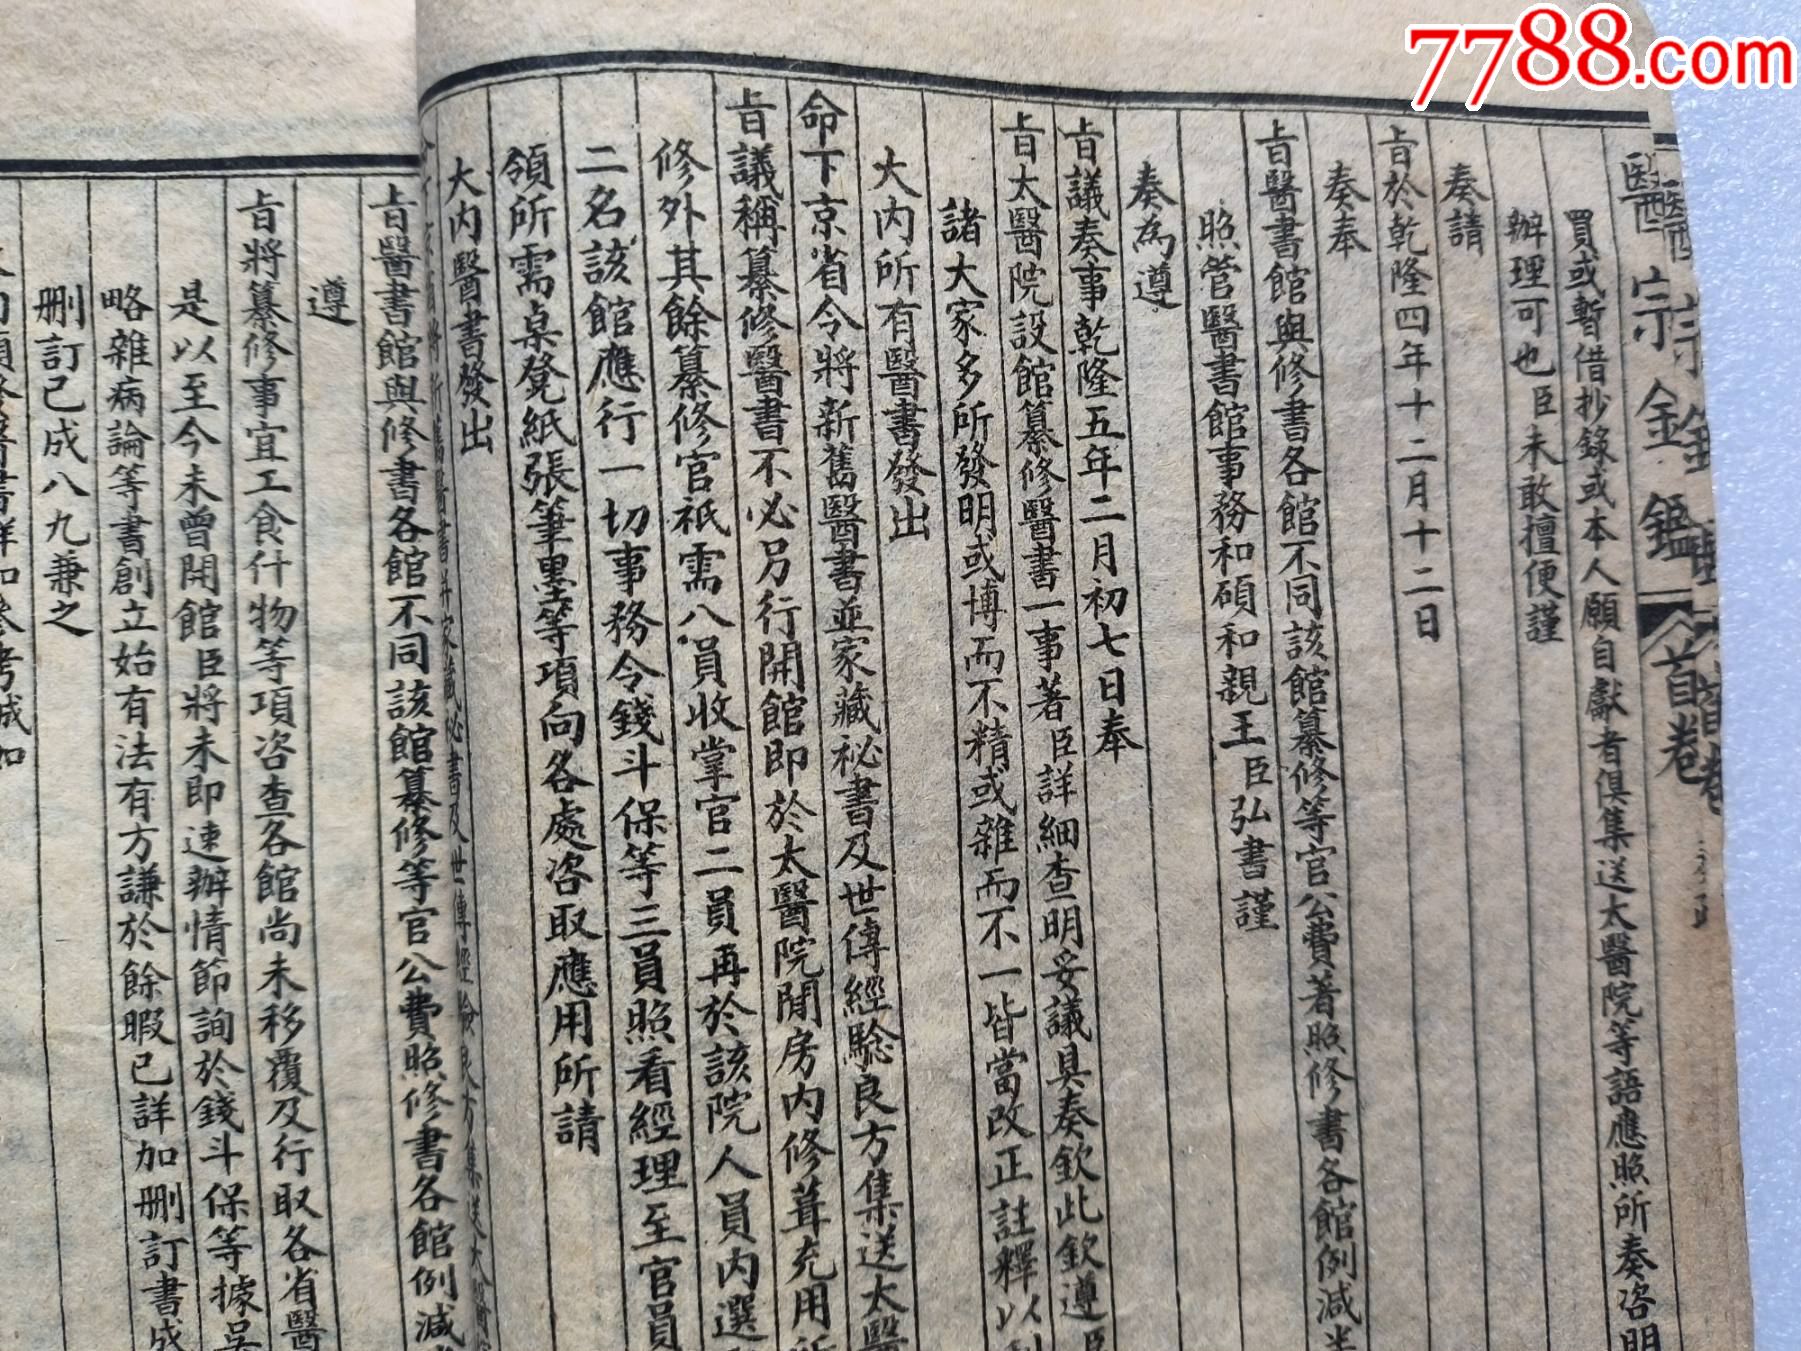 7788.com
醫宗金鑑
首卷
買或暫借抄錄或本人願自獻者俱集送太醫院等語應照所奏咨明
辦理可也臣未敢擅便謹
奏請
旨於乾隆四年十二月十二日
奏奉
旨醫書館與修書各館不同該館纂修等官公費著照修書各館例減半
照管醫書館事務和碩和親王臣弘晝謹
奏為遵
旨議奏事乾隆五年二月初七日奉
旨太醫院設館纂修醫書一事著臣詳細查明妥議具奏欽此欽遵臣
諸大家多所發明或博而不精或雜而不一皆當改正註釋以
大內所有醫書發出
命下京省令將新舊醫書並家藏祕書及世傳經驗良方集送太醫
旨議稱纂修醫書不必另行開館即於太醫院閒房內修葺充用所
修外其餘纂修官衹需八員收掌官二員再於該院人員內選
二名該館應行一切事務令錢斗保等三員照看經理至官員
領所需桌凳紙張筆墨等項向各處咨取應用所請
大內醫書發出
旨醫書館與修書各館不同該館纂修等官公費照修書各館例減
遵
旨將纂修事宜工食什物等項咨查各館尚未移覆及行取各省醫
是以至今未曾開館臣將未即速辦情節詢於錢斗保等據吳
略雜病論等書創立始有法有方謙於餘暇已詳加刪訂書成
刪訂已成八九兼之